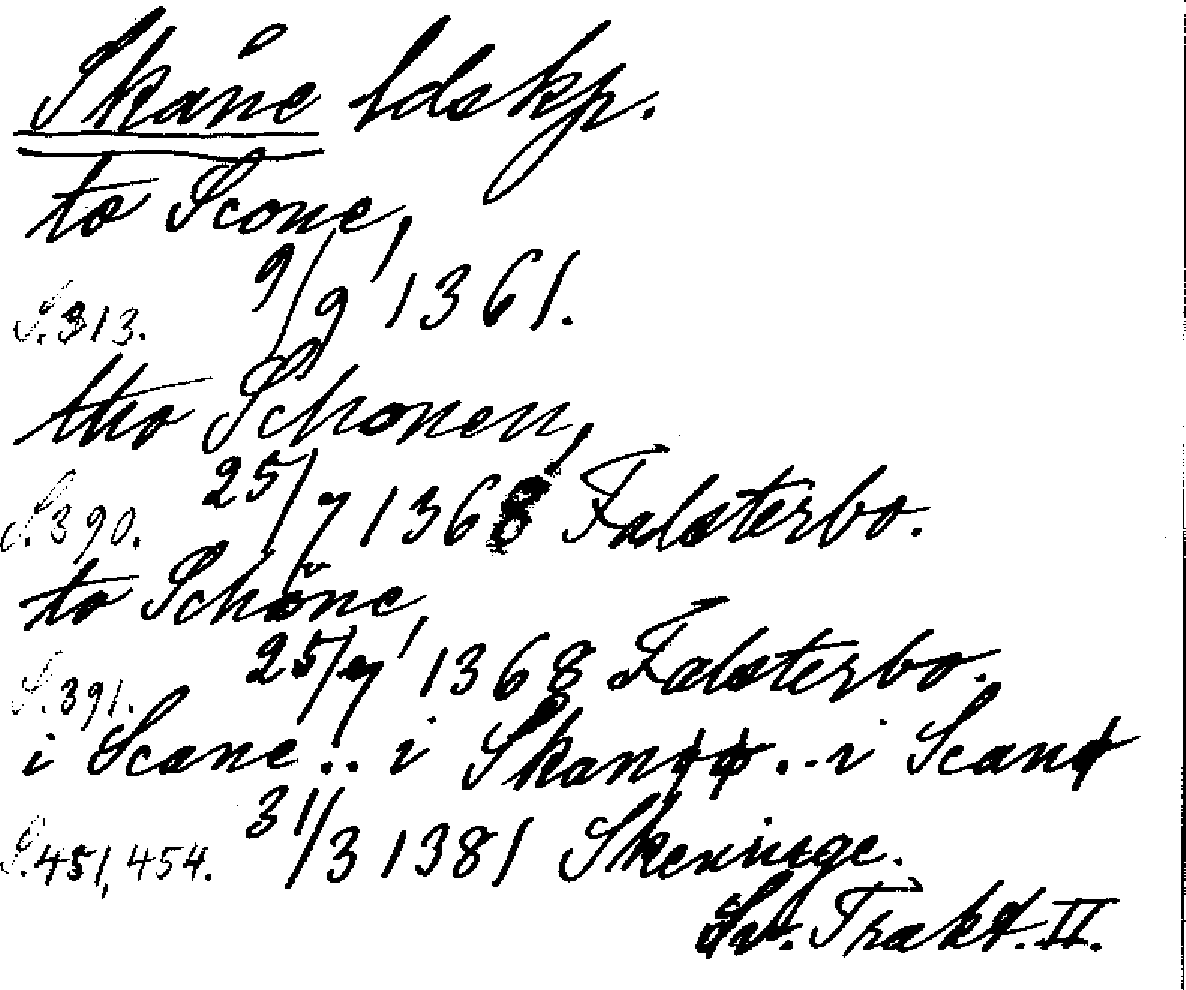 Skåne ldskp.
to Scone,
S. 313. 9/9 1361.
tho Schonen,
S. 390. 25/7 1368 Falsterbo.
to Schone,
S. 391. 25/7 1368 Falsterbo.
i Scane... i Skanøø... i Scanø
S. 451, 454. 31/3 1381 Skeninge.
Sv. Trakt. II.